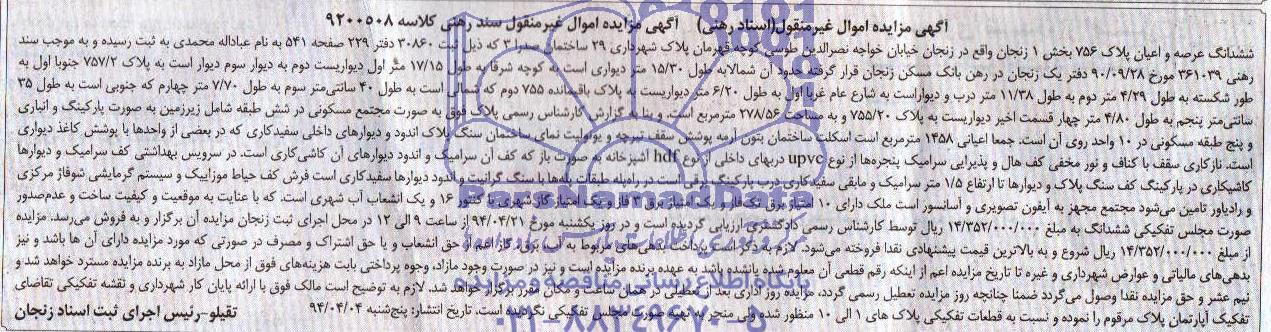 آگهی مزایده اموال غیرمنقول(اسناد رهنی) آگهی مزایده اموال غیرمنقول سند رهنی کلاسه ۹۲۰۰۵۰۸
ششدانگ عرصه و اعیان پلاک ۷۵۶ بخش ۱ زنجان واقع در زنجان خیابان خواجه نصرالدین طوسی کوچه قهرمان پلاک شهرداری ۲۹ ساختمان صدرا ۳ که ذیل ثبت ۳۰۸۶۰ دفتر ۲۲۹ صفحه ۵۴۱ به نام عبداله محمدی به ثبت رسیده و به موجب سند
رهنی ۳۶۱۰۳۹ مورخ ۹۰/۰۹/۲۸ دفتر یک زنجان در رهن بانک مسکن زنجان قرار گرفته حدود آن شمالا به طول ۱۵/۳۰ متر دیواری است به کوچه شرقا به طول ۱۷/۱۵ متر اول دیواریست دوم به دیوار سوم دیوار است به پلاک ۷۵۷/۲ جنوبا اول به
طور شکسته به طول ۴/۲۹ متر دوم به طول ۱۱/۳۸ متر درب و دیواراست به شارع عام غربا اول به طول ۶/۲۰ متر دیواریست به پلاک باقیمانده ۷۵۵ دوم که شمالی است به طول ۴۰ سانتی‌متر سوم به طول ۷/۷۰ متر چهارم که جنوبی است به طول ۳۵
سانتی‌متر پنجم به طول ۴/۸۰ متر چهار قسمت اخیر دیواریست به پلاک ۷۵۵/۲۰ و به مساحت ۲۷۸/۵۶ مترمربع است. و بنا به گزارش کارشناس رسمی پلاک فوق به صورت مجتمع مسکونی در شش طبقه شامل زیرزمین به صورت پارکینگ و انباری
و پنج طبقه مسکونی در ۱۰ واحد روی آن است. جمعا اعیانی ۱۴۵۸ مترمربع است اسکلت ساختمان بتون آرمه پوشش سقف تیرچه و یونولیت نمای ساختمان سنگ پلاک اندود و دیوارهای داخلی سفیدکاری که در بعضی از واحدها با پوشش کاغذ دیواری
است. نازکاری سقف با کناف و نور مخفی کف هال و پذیرایی سرامیک پنجره‌ها از نوع upvc دربهای داخلی از نوع hdf آشپزخانه به صورت باز که کف آن سرامیک و اندود دیوارهای آن کاشی‌کاری است. در سرویس بهداشتی کف سرامیک و دیوارها
کاشیکاری در پارکینگ کف سنگ پلاک و دیوارها تا ارتفاع ۱/۵ متر سرامیک و مابقی سفیدکاری درب پارکینگ برقی است در راه‌پله طبقات پله‌ها با سنگ گرانیت و اندود دیوارها سفیدکاری است فرش کف حیاط موزاییک و سیستم گرمایشی شوفاژ مرکزی
و رادیاور تامین می‌شود مجتمع مجهز به آیفون تصویری و آسانسور است ملک دارای ۱۰ امتیاز برق تک‌فاز و یک امتیاز برق ۳ فاز و یک امتیاز گاز شهری با کنتور ۱۶ و یک انشعاب آب شهری است. که با عنایت به موقعیت و کیفیت ساخت و عدم‌صدور
صورت مجلس تفکیکی ششدانگ به مبلغ ۱۴/۳۵۲/۰۰۰/۰۰۰ ریال توسط کارشناس رسمی دادگستری ارزیابی گردیده است و در روز یکشنبه مورخ ۹۴/۰۴/۲۱ از ساعت ۹ الی ۱۲ در محل اجرای ثبت زنجان مزایده آن برگزار و به فروش می‌رسد. مزایده
از مبلغ ۱۴/۳۵۲/۰۰۰/۰۰۰ ریال شروع و به بالاترین قیمت پیشنهادی نقدا فروخته می‌شود. لازم به ذکر است پرداخت بدهی‌های مربوط به آب، برق، گاز اعم از حق انشعاب و یا حق اشتراک و مصرف در صورتی که مورد مزایده دارای آن ها باشد و نیز
بدهی‌های مالیاتی و عوارض شهرداری و غیره تا تاریخ مزایده اعم از اینکه رقم قطعی آن معلوم شده یانشده باشد به عهده برنده مزایده است و نیز در صورت وجود مازاد، وجوه پرداختی بابت هزینه‌های فوق از محل مازاد به برنده مزایده مسترد خواهد شد و
نیم عشر و حق مزایده نقدا وصول می‌گردد ضمنا چنانچه روز مزایده تعطیل رسمی گردد، مزایده روز اداری بعد از تعطیلی در همان ساعت و مکان مقرر برگزار خواهد شد. لازم به توضیح است مالک فوق با ارائه پایان کار شهرداری و نقشه تفکیکی تقاضای
تفکیک آپارتمان پلاک مرقوم را نموده و نسبت به قطعات تفکیکی پلاک های ۱ الی ۱۰ منظور شده ولی منجر به تهیه صورت مجلس تفکیکی نگردیده است. تاریخ انتشار: پنج‌شنبه ۹۴/۰۴/۰۴
تقیلو-رئیس اجرای ثبت اسناد زنجان
ParsNamadData
پایگاه اطلاع رسانی مناقصه و مزایده
۰۲۱-۸۸۳۴۹۶۷۰-۵